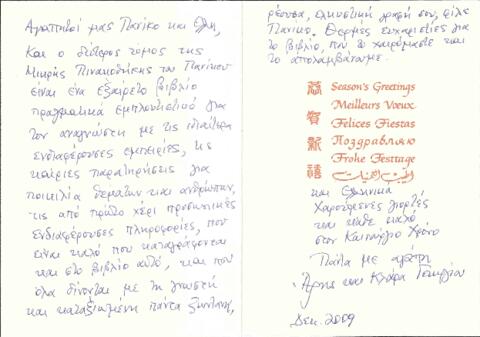 Αγαπητοί μας Πανίκο και Έλλη,
Και ο δεύτερος τόμος της
Μικρής Πινακοθήκης του Πανίκου
είναι ένα εξαίρετο βιβλίο
πραγματικά εμπλουτιστικό για
τον αναγνώστη με τις ιδιαίτερα
ενδιαφέρουσες εμπειρίες, τις
καίριες παρατηρήσεις για
ποικιλία θεμάτων και ανθρώπων,
τις από πρώτο χέρι προσωπικές
ενδιαφέρουσες πληροφορίες, που
είναι καλό που καταγράφονται
και στο βιβλίο αυτό, και που
όλα δίνονται με τη γνωστή
και καταξιωμένη πάντα ζωντανή,
ρέουσα, ελκυστική γραφή σου, φίλε
Πανίκο. Θερμές ευχαριστίες για
το βιβλίο, που το χαιρόμαστε και
το απολαμβάνομε.
Season's Greetings
賀 Meilleurs Vœux
Felices Fiestas
新 Поздравляю
Frohe Festtage
禧
και Ελληνικά
Χαρούμενες γιορτές
και κάθε καλό
στον Καινούργιο Χρόνο
Πάντα με αγάπη
Άρης και Κλάρα Γεωργίου
Δεκ. 2009